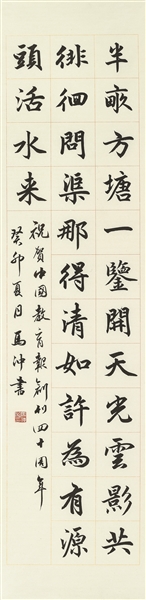 半畝方塘一鑒開天光雲影共
徘徊問渠那得清如許為有源
頭活水来
祝賀中國教育報創刊四十周年
癸卯夏月馬沖書